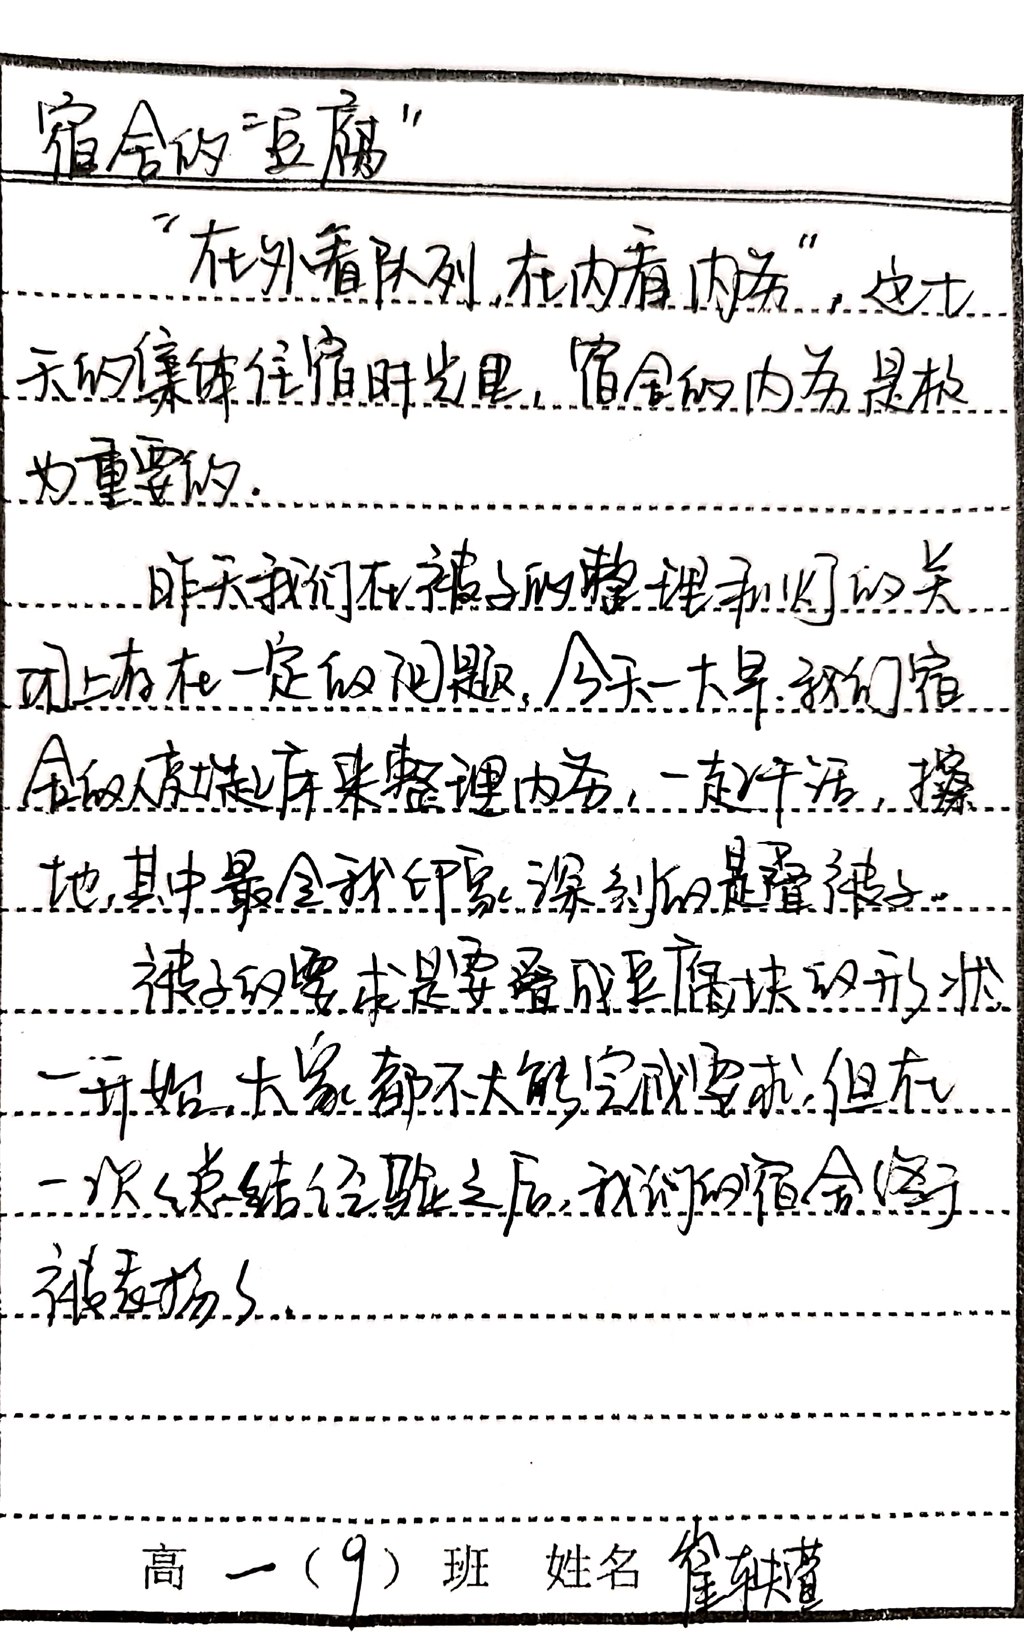 宿舍的“豆腐”
“在外看队列,在内看内务”,这七
天的集体住宿时光里,宿舍的内务是极
为重要的.
昨天我们在被子的整理和灯的关
闭上存在一定的问题,今天一大早.我们宿
舍的人就起床来整理内务,一起干活,擦
地,其中最令我印象深刻的是叠被子.
被子的要求是要叠成豆腐块的形状
一开始,大家都不大能完成要求,但在
一次次总结经验之后,我们的宿舍终于
被表扬了.
高一(9)班 姓名 崔轶萱